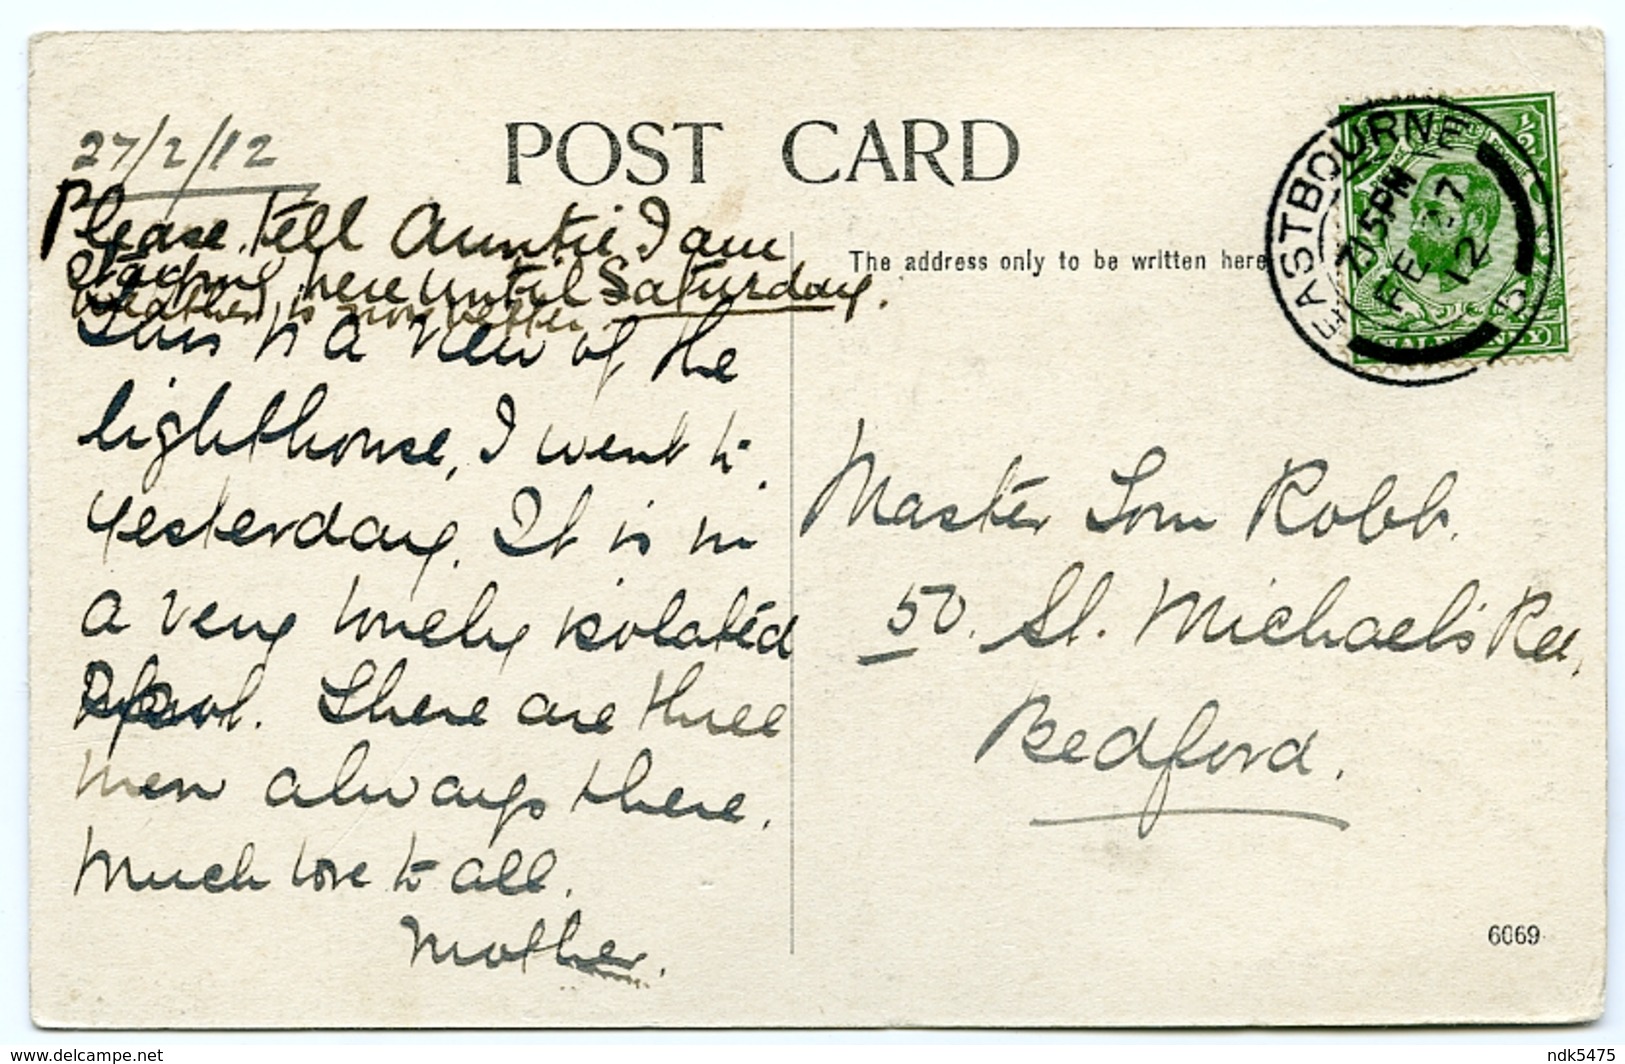 POST CARD
27/2/12
Please tell Auntie I am
staying here until Saturday.
Weather is now better.
This is a view of the
lighthouse, I went to
yesterday. It is in
a very lonely isolated
spot. There are three
men always there.
Much love to all.
Mother.
The address only to be written here
EASTBOURNE
7 15 PM
FE 27
12
5
1/2
HALFPENNY
Master Tom Robb.
50. St. Michael's Rd,
Bedford.
6069
delcampe.net
ndk5475